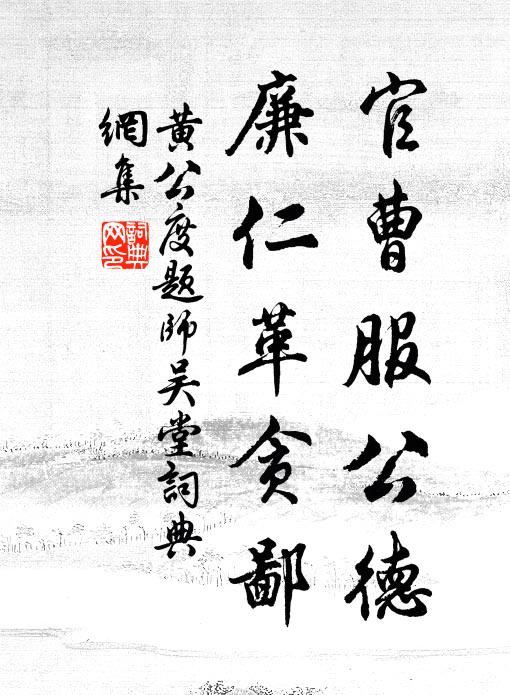 官曹服公德
廉仁革贪鄙
黄公度题师吴堂词典
網集
詞典
网印